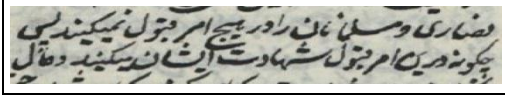 نصاری و مسلمانان را در هیچ امر قبول نمیکنند پس
چگونه درین امر قبول شهادت ایشان میکنند و حال